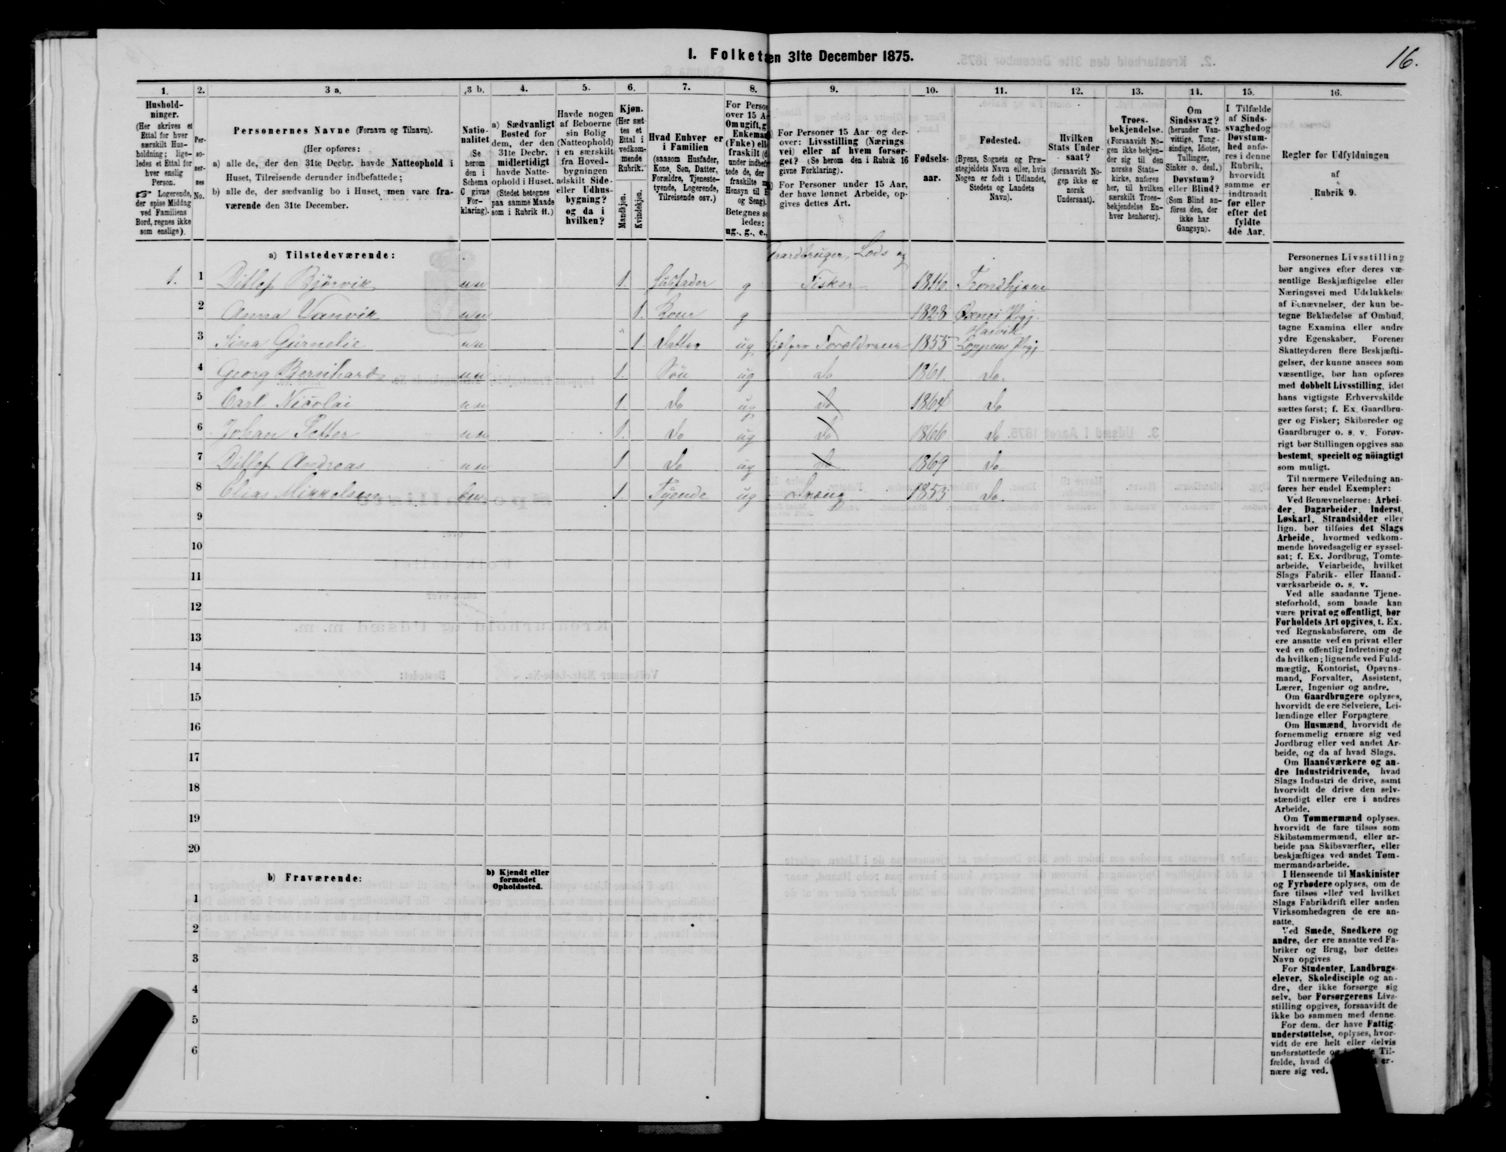 16.
I. Folketæn 31te December 1875.
1. 2. 3 a. 3 b. 4. 5. 6. 7. 8. 9. 10. 11. 12. 13. 14. 15. 16.
Hushold-
ninger.
(Her skrives et
Ettal for hver
særskilt Hus-
holdning; lige-
ledes et Ettal for
hver enslig
Person.
Logerende,
der spise Middag
ved Familiens
Bord, regnes ikke
som enslige).
Per-
so-
ner-
nes
No.
Personernes Navne (Fornavn og Tilnavn).
(Her opføres:
a) alle de, der den 31te Decbr. havde Natteophold i
Huset, Tilreisende derunder indbefattede;
b) alle de, der sædvanlig bo i Huset, men vare fra-
værende den 31te December.
Natio-
nalitet
(Se
herom
den i
Schema
G givne
For-
klaring).
a) Sædvanligt
Bosted for
dem, der den
31te Decbr.
midlertidigt
havde Natte-
ophold i Huset.
(Stedet betegnes
paa samme Maade
som i Rubrik 11.)
Havde nogen
af Beboerne
sin Bolig
(Natteophold)
i en særskilt
fra Hoved-
bygningen
adskilt Side-
eller Udhus-
bygning?
og da i
hvilken?
Kjøn.
(Her sæt-
tes et
Ettal i
vedkom-
mende
Rubrik.
Mandkjøn.
Kvindekjøn.
Hvad Enhver er
i Familien
(saasom Husfader,
Kone, Søn, Datter,
Forældre, Tjeneste-
tyende, Logerende,
Tilreisende osv.)
For Perso
over 15 A
Om ugift, g
Enkema
(Fnke) ell
fraskilt (d
under indbef
tede de, der
fraskilte
Hensyn til B
og Seng).
Betegnes s
ledes:
ug., g., e.,
For Personer 15 Aar og der-
over: Livsstilling (Nærings
vei) eller af hvem forsør-
get? (Se herom den i Rubrik 16
givne Forklaring).
For Personer under 15 Aar,
der have lønnet Arbeide, op-
gives dettes Art.
Fødsels-
aar.
Fødested.
(Byens, Sognets og Præ-
stegjeldets Navn eller, hvis
Nogen er født i Udlandet,
Stedets og Landets
Navn).
Hvilken
Stats Under-
saat?
(forsaavidt No-
gen ikke er
norsk
Undersaat).
Troes-
bekjendelse.
(Forsaavidt No-
gen ikke bekjen-
der sig til den
norske Stats-
kirke, anføres
her, til hvilken
særskilt Troes-
bekjendelse En-
hver henhører).
Om
Sindssvag?
(herunder Van-
vittige, Tung-
sindige, Idioter,
Tullinger,
Sinker o. desl.)
Døvstum?
eller Blind?
(Som Blind an-
føres den, der
ikke har
Gangsyn).
I Tilfælde
af Sinds-
svaghed og
Døvstum-
hed anfø-
res i denne
Rubrik,
hvorvidt
samme er
indtraadt
før eller
efter det
fyldte
4de Aar.
Regler for Udfyldningen
af
Rubrik 9.
a) Tilstedeværende:
Gaardbruger, Lods og
1. 1 Ditlef Bjørvik nn 1 Husfader g Fisker Trondhjem
2 Anna Vanvik nn 1 Kone g 1828
Hasvik
3 nn 1 Datter ug Forældrene 1855 Loppens Pgj
4 Georg Bernhard nn 1 Søn ug do 1861 do
5 Carl Nicolai nn 1 do ug do 1864 do
6 Johan Petter nn 1 do ug do 1866 do
7 Ditlef Andreas nn 1 do ug do 1869 do
8 Elias Mikkelsen 1 Tyende ug Dreng 1853 do
9
10
11
12
13
14
15
16
17
18
19
20
b) Fraværende:
b) Kjendt eller
formodet
Opholdssted.
1
2
3
4
5
6
Personernes Livsstilling
bør angives efter deres væ-
sentlige Beskjæftigelse eller
Næringsvei med Udelukkelse
af Benævnelser, der kun be-
tegne Beklædelse af Ombud,
tagne Examina eller andre
ydre Egenskaber. Forener
Skatteyderen flere Beskjæfti-
gelser, der kunne ansees som
væsentlige, bør han opføres
med dobbelt Livsstilling, idet
hans vigtigste Erhvervskilde
sættes først; f. Ex. Gaardbru-
ger og Fisker; Skibsreder og
Gaardbruger o. s. v. Forøv-
rigt bør Stillingen opgives saa
bestemt, specielt og nøiagtigt
som muligt.
Til nærmere Veiledning an-
føres her endel Exempler:
Ved Benævnelserne: Arbei-
der, Dagarbeider, Inderst,
Løskarl, Strandsidder eller
lign. bør tilføies det Slags
Arbeide, hvormed vedkom-
mende hovedsagelig er syssel-
sat; f. Ex. Jordbrug, Tomte-
arbeide, Veiarbeide, hvilket
Slags Fabrik- eller Haand-
værksarbeide o. s. v.
Ved alle saadanne Tjene-
steforhold, som baade kan
være privat og offentligt, bør
Forholdets Art opgives, t. Ex.
ved Regnskabsførere, om de
ere ansatte ved en privat eller
ved en offentlig Indretning og
da hvilken; lignende ved Fuld-
mægtig, Kontorist, Opsyns-
mand, Forvalter, Assistent,
Lærer, Ingeniør og andre.
Om Gaardbrugere oplyses,
hvorvidt de ere Selveiere, Lei-
lændinge eller Forpagtere.
Om Husmænd, hvorvidt de
fornemmelig ernære sig ved
Jordbrug eller ved andet Ar-
beide, og da af hvad Slags.
Om Haandværkere og an-
dre Industridrivende, hvad
Slags Industri de drive, samt
hvorvidt de drive den selv-
stændigt eller ere i andres
Arbeide.
Om Tømmermænd oplyses,
hvorvidt de fare tilsøs som
Skibstømmermænd, eller ar-
beide paa Skibsværfter, eller
beskjæftiges ved andet Tøm-
mermandsarbeide.
I Henseende til Maskinister
og Fyrbødere oplyses, om de
fare tilsøs eller ved hvilket
Slags Fabrikdrift eller anden
Virksomhedsgren de ere an-
satte.
Ved Smede, Snedkere og
andre, der ere ansatte ved Fa-
briker og Brug, bør dettes
Navn opgives
For Studenter, Landbrugs-
elever, Skoledisciple og an-
dre, der ikke forsørge sig
selv, bør Forsørgerens Livs-
stilling opgives, forsaavidt de
ikke bo sammen med denne.
For dem, der have Fattig-
understøttelse, oplyses, hvor-
vidt de ere helt eller delvis
understøttede og Til-
fælde, hvad er-
nære sig ved.